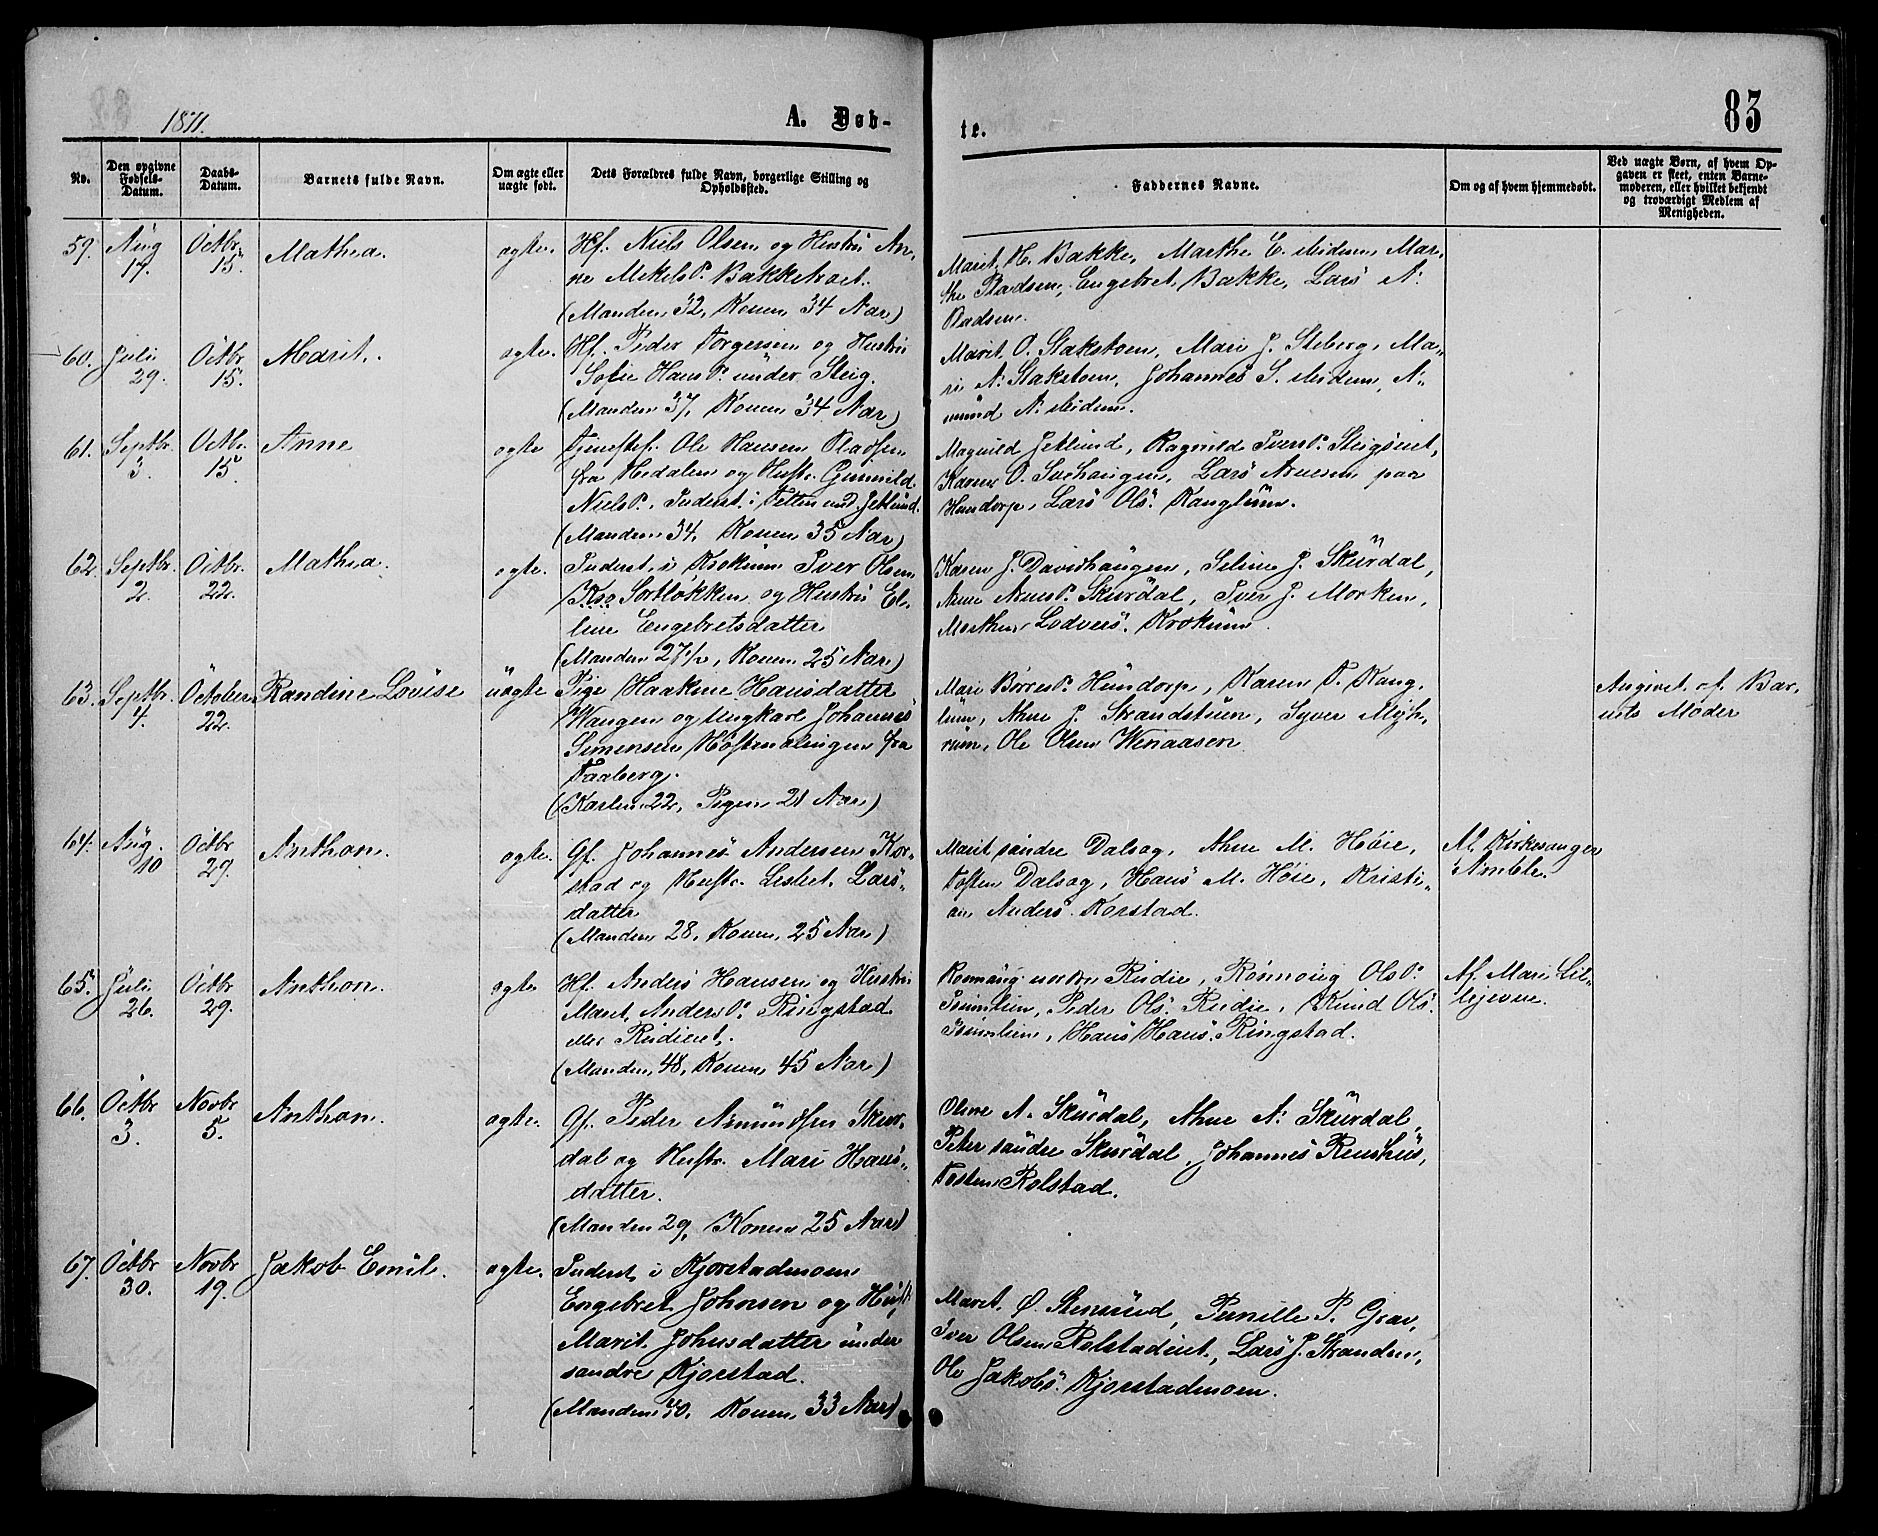 1871.
A. Døb-
te.
83
No.
Den opgivne Fødsels-Datum.
Daabs-Datum.
Barnets fulde Navn.
Om ægte eller uægte født.
Dets Forældres fulde Navn, borgerlige Stilling og Opholdssted.
Faddernes Navne.
Om og af hvem hjemmedøbt.
Ved uægte Børn, af hvem Opgaven er skeet, enten Barnemoderen, eller hvilket bekjendt og troværdigt Medlem af Menigheden.
59. Aug 17. Octbr 15. Mathea. ægte. Hf. Niels Olsen og Hustru An-
ne Mikels D. Bakketræet.
(Manden 32, Konen 34 Aar)
Marit H. Bakke, Marthe E. Midem, Mar-
the Pladsen, Engebret Bakke, Lars N.
Pladsen.
60. Juli 29. Octbr 15. Marit. ægte. Hf. Peder Torgersen og Hustru
Sofie Hans D. under Steig.
(Manden 37, Konen 34 Aar)
Marit O. Stakstoen, Mari J. Steberg, Ma-
ri A. Stakstoen, Johannes S. Midem, A-
mund A. Midem.
61. Septbr. 3. Octbr. 15. Anne ægte Tjenestef. Ole Hansen Pladsen
fra Hedalen og Hustr. Gunnild
Niels D. Inderst i Tetten und. Jetlund.
(Manden 34, Konen 35 Aar)
Magnild Jetlund, Ragnild Ivers D. Steigseiet,
Karen O. Sorhaugen, Lars Arnesen paa
Hundorp, Lars Ols. Kanglum.
62. Septbr. 2. Octbr. 22. Mathea. ægte. Inderst i Krokum Iver Olsen
Kso Sortløkken og Hustru El-
line Engebretsdatter
(Manden 27½, Konen 25 Aar)
Karen J. Davidhaugen, Seline J. Skurdal,
Anne Arnes D. Skurdal, Iver J. Morken,
Mathes Lodvers. Krokum
63. Septbr. 4. October 22. Randine Lovise uægte Pige Haakine Hansdatter
Wangen og Ungkarl Johannes
Simensen Høstmælingen fra
Faaberg.
(Karlen 22, Pigen 21 Aar)
Mari Børres D. Hundorp, Karen P. Kang-
lum, Anne J. Strandstuen, Syver Myh-
rum, Ole Olsen Wenaasen
Angivet af Bar-
nets Moder
64. Aug. 10 Octbr 29. Anthon. ægte. Gf. Johannes Andersen Kor-
stad og Hustr. Lisbet Lars-
datter
(Manden 28, Konen 25 Aar)
Marit søndre Dalsæg, Anne M. Høie,
Tosten Dalsæg, Hans M. Høie, Kristi-
an Anders. Korstad.
Af Kirkesanger
Amble.
65. Juli 26. Octbr 29. Anthon. ægte Hf. Anders Hansen og Hustru
Marit Anders D. Ringstad
eller Rudieiet.
(Manden 48, Konen 45 Aar)
Ronnaug nordre Rudie, Rønnoug Ols D.
Brunlien, Peder Ols. Rudie, Knud Ols.
Brunlien, Hans Hans. Ringstad.
Af Mari Lil-
lejevne.
66. Octbr 3. Novbr 5. Anthon. ægte. Gf. Peder Amundsen Skur-
dal og Hustr. Mari Hans-
datter.
(Manden 29, Konen 25 Aar)
Oline A. Skurdal, Anne A. Skurdal,
Peter søndre Skurdal, Johannes Renshus,
Tosten Rolstad.
67. Octbr 30. Novbr 19. Jakob Emil. ægte. Inderst i Kjorstadmoen
Engebret Johnsen og Hust.
Marit Johnsdatter under
søndre Kjorstad.
(Manden 40, Konen 33 Aar)
Marit Ø. Stensrud, Pernille P. Grav,
Iver Olsen Rolstadeiet, Lars J. Stranden,
Ole Jakobs. Kjorstadmoen.